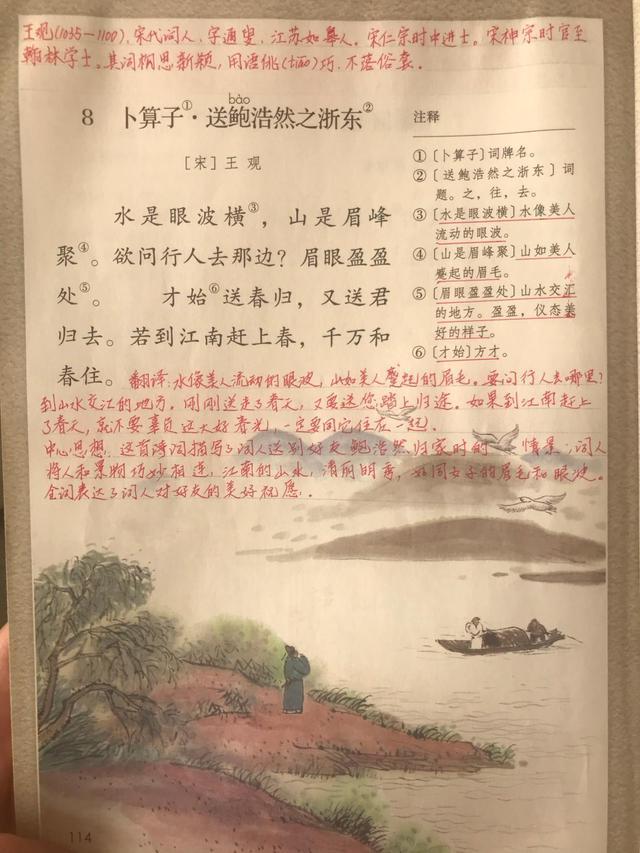 王观(1035—1100),宋代词人,字通叟,江苏如皋人。宋仁宗时中进士。宋神宗时官至
翰林学士。其词构思新颖,用语佻(tiāo)巧,不落俗套。
bào
8 卜算子①·送鲍浩然之浙东②
[宋]王 观
水是眼波横③,山是眉峰
聚④。欲问行人去那边?眉眼盈盈
处⑤。 才始⑥送春归,又送君
归去。若到江南赶上春,千万和
春住。
注释
①〔卜算子〕词牌名。
②〔送鲍浩然之浙东〕词
题。之,往,去。
③〔水是眼波横〕水像美人
流动的眼波。
④〔山是眉峰聚〕山如美人
蹙起的眉毛。
⑤〔眉眼盈盈处〕山水交汇
的地方。盈盈,仪态美
好的样子。
⑥〔才始〕方才。
翻译:水像美人流动的眼波,山如美人蹙起的眉毛。要问行人去哪里?
到山水交汇的地方。刚刚送走了春天,又要送您踏上归途。如果到江南赶上
了春天,就不要辜负这大好春光,一定要同它住在一起。
中心思想:这首诗词描写了词人送别好友鲍浩然归家时的情景;词人
将人和景物巧妙相连,江南的山水,清丽明秀,好同女子的眉毛和眼波。
全词表达了词人对好友的美好祝愿。
114